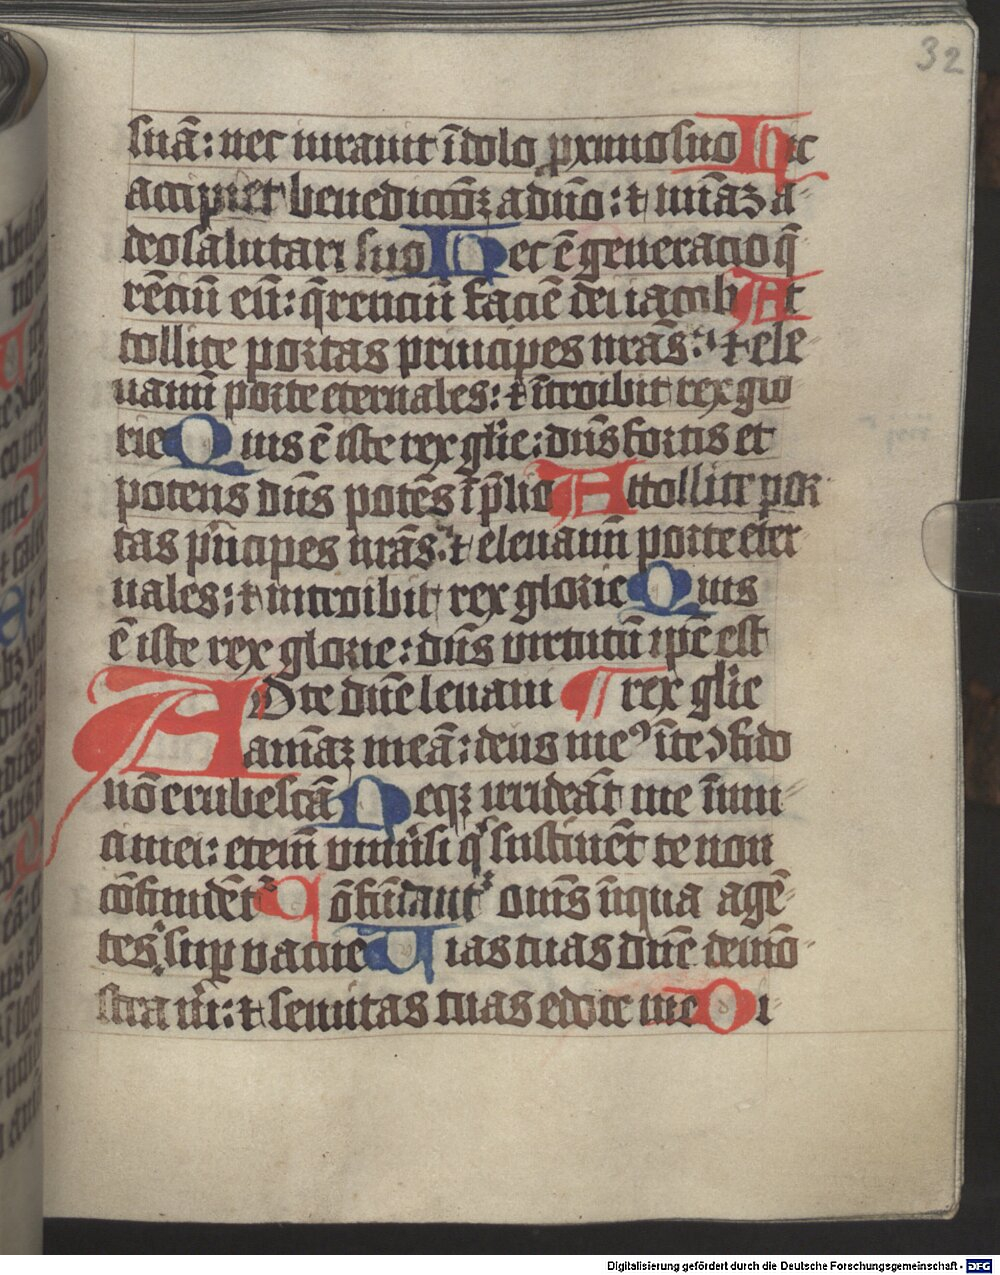 32
suā: nec iurauit ī dolo pximo suo Hic
accipiet benediccōꝫ a dūo: ⁊ mīaꝫ a
deo salutari suo Hec ē generacio q̄
rēciū eū: q̄renciū faciē dei iacob At
tollite portas principes urās: ⁊ ele
uamī porte eternales: ⁊ ītroibit rex glo
rie Quis ē iste rex gl̄ie: dūs fortis et
potens dūs potēs ī p̄lio Attollite por
tas p̄ncipes urās: ⁊ eleuamī porte eter
nales: ⁊ introibit rex glorie Quis
ē iste rex glorie: dūs uirtutū ip̄e est
AD te dūe leuaui ¶ rex gl̄ie
amīaꝫ meā: deus meꝰ ī te ↄfido
nō erubescā Neqꝫ irrideāt me īimi
ci mei: etenī uniūsi q̄ sustinēt te non
cōfundēt᷑ Cōfūdant᷑ omīs īiqua agē
tes suꝑuacue Uias tuas dūe demō
stra m̄: ⁊ semitas tuas edoce me Di
Digitalisierung gefördert durch die Deutsche Forschungsgemeinschaft - DFG